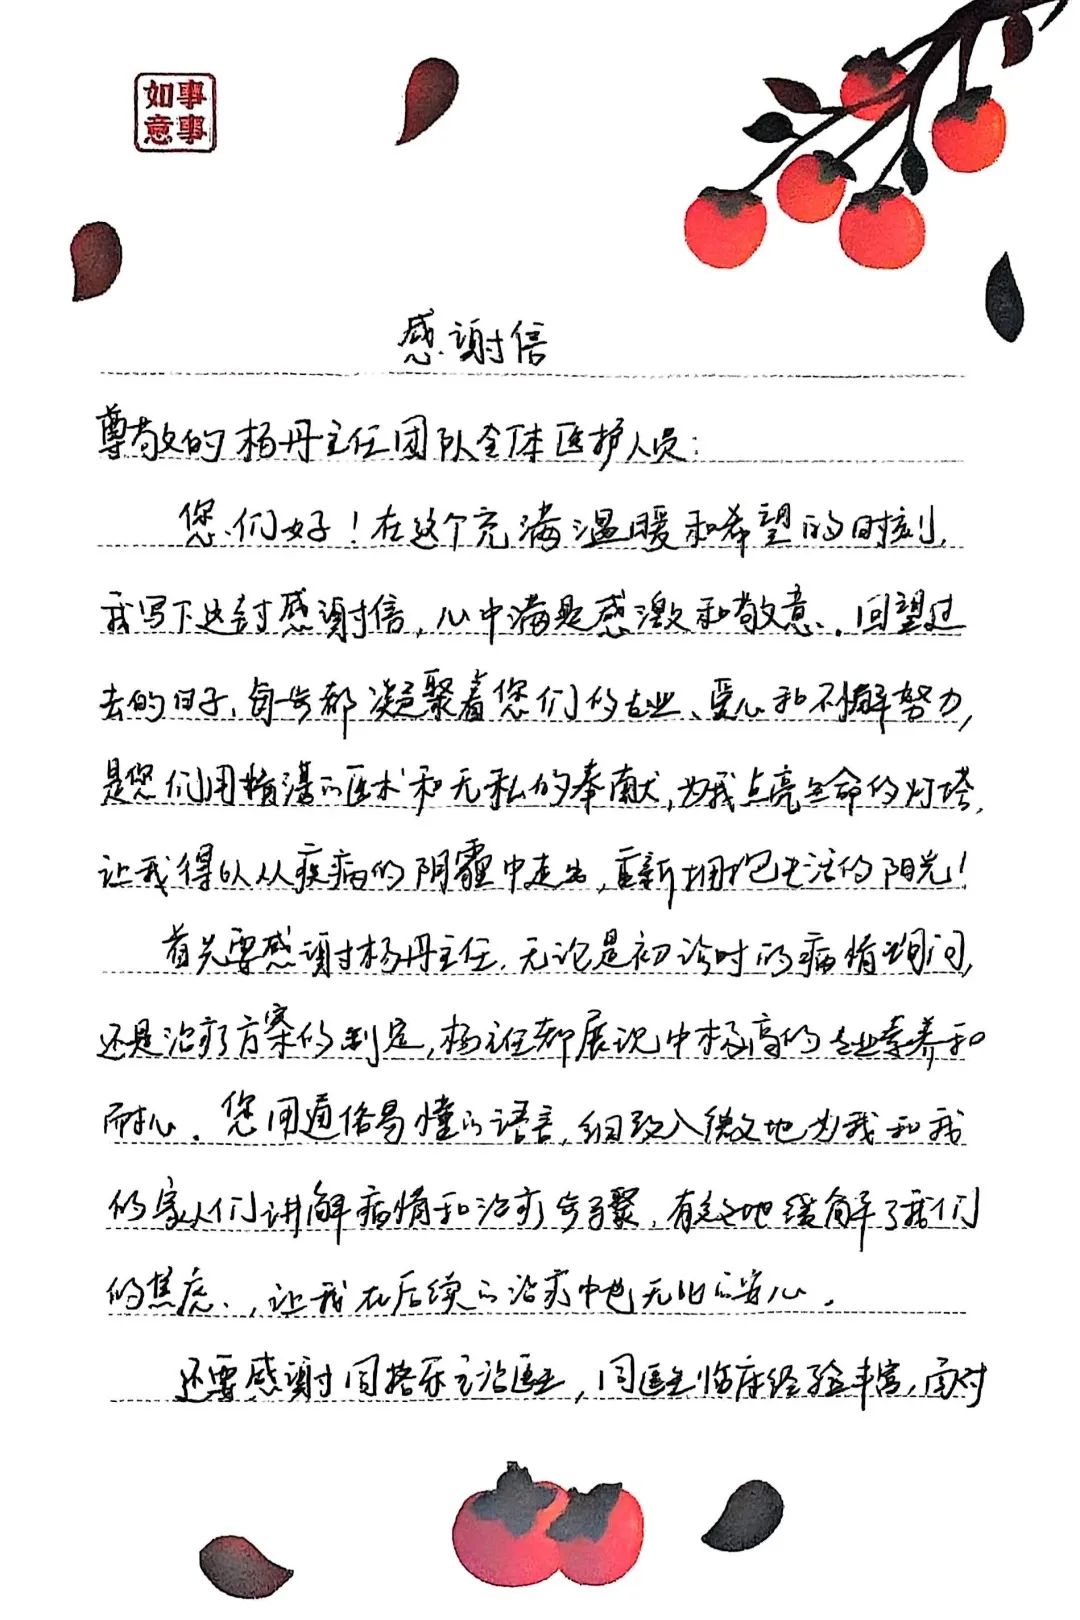 事事
如意
感谢信
尊敬的杨丹主任团队全体医护人员：
您们好！在这个充满温暖和希望的时刻，
我写下这封感谢信，心中满是感激和敬意。回望过
去的日子，每步都凝聚着您们的专业、爱心和不懈努力，
是您们用精湛的医术和无私的奉献，为我点亮生命的灯塔，
让我得以从疾病的阴霾中走出，重新拥抱生活的阳光！
首先要感谢杨丹主任，无论是初诊时的病情询问，
还是治疗方案的制定，杨主任都展现出极高的专业素养和
耐心。您用通俗易懂的语言，细致入微地为我和我
的家人们讲解病情和治疗步骤，有效地缓解了我们
的焦虑，让我在后续的治疗中也无比的安心。
还要感谢闫格乐主治医生，闫医生临床经验丰富，面对